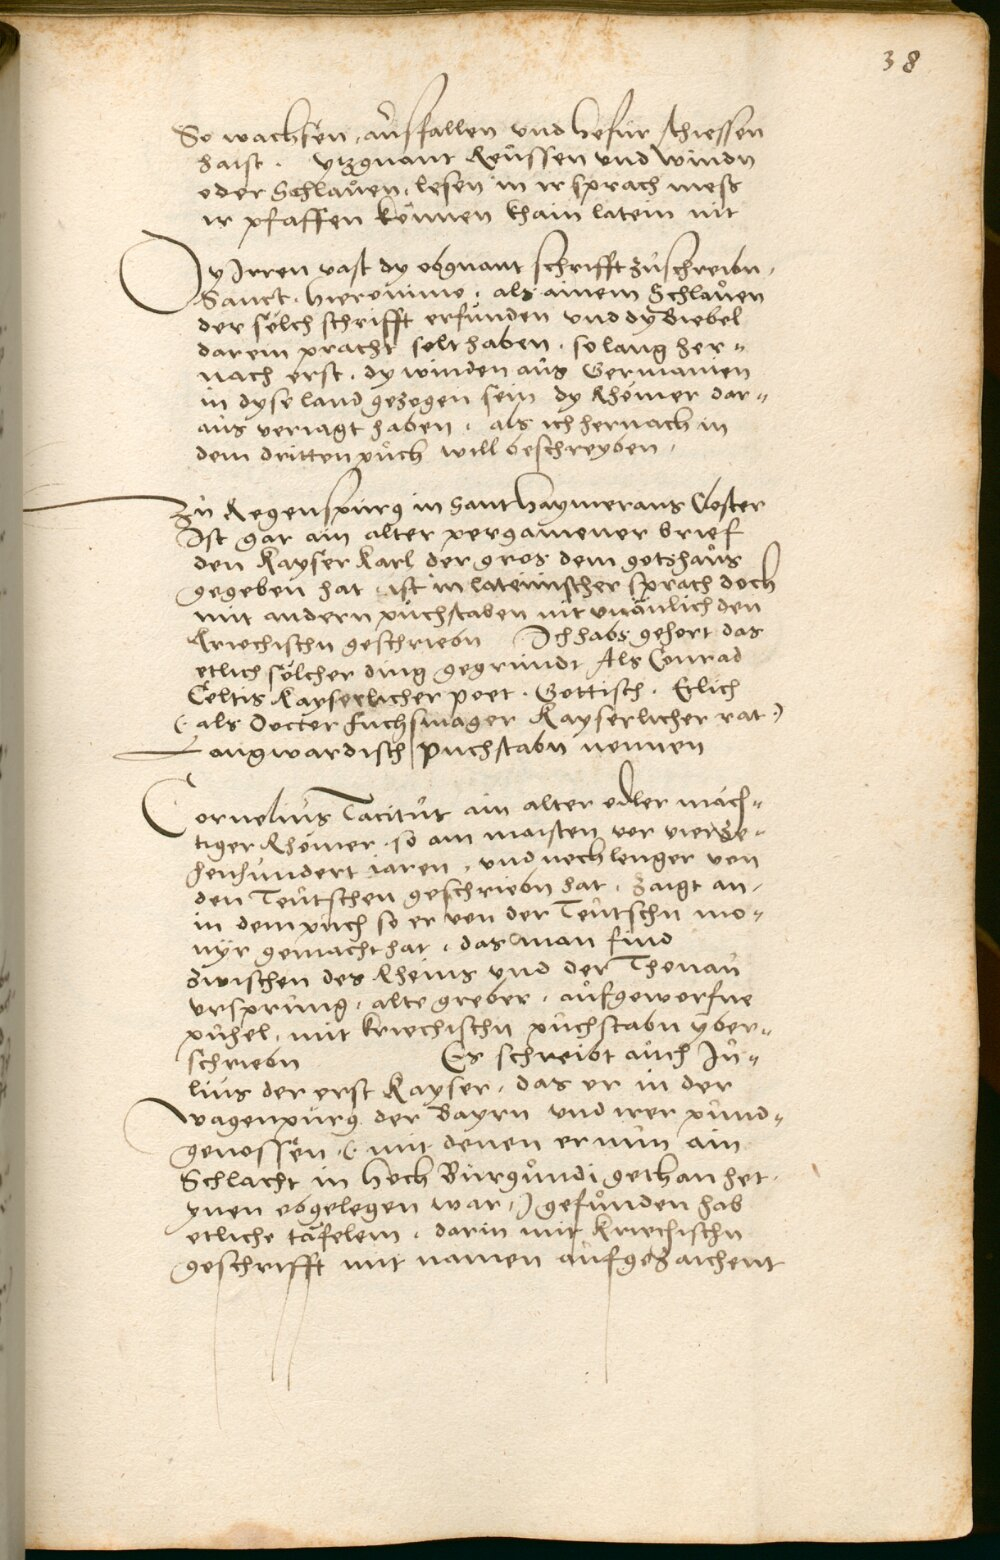 38
So wachsen, ausfallen vnd hefür schiessen
haist. ytzgnant Reüssen vnd Windn
oder Schlaůen, lesen in ir sprach mess
ir pfaffen können khain latein nit
Dy Irren vast dy obgnant schrifft zůschreibn,
Sanct. Hieronimo, als ainem Schlaůen
der sölch schrifft erfůnden vnd dy Biebel
darein pracht solt haben. so lang her=
nach erst. dy winden aůs Germanien
in dyse land gezogen sein dy Rhömer dar=
aůs veriagt haben, als ich hernach in
dem dritten půch will beschreyben,
Zů Regenspürg in Sant Haymerans Closter
Ist gar ain alter pergamener brief
den Kayser Karl der gros dem gotshaůs
gegeben hat, ist in lateinischer sprach doch
mit andern půchstaben nit vnänlich den
kriechischn geschriebn Ich habs gehört das
etlich sölcher ding gegründt Als Conrad
Celtis Kayserlicher poet. Gottisch. Etlich
(. als Doctor Fuchsmager Kayserlicher rat.)
Langwardisch puchstabn nennen
Cornelius Tacitůs ain alter edler mäch=
tiger Rhömer. so am maisten vor vierze=
henhůndert iaren, vnd noch lenger von
den Teůtschen geschriebn hat, zaigt an,
in dem půch so er von der Teůtschn mo=
nÿr gemacht hat, das man find
zwischen des Rheins vnd der Thonaů
vrsprůng, alte greber, aůfgeworfne
půhel, mit kriechischn půchstabn yber=
schriebn Es schreibt aůch Jů=
lius der erst Kayser, das er in der
wagenpürg der Bayrn vnd irer půnd=
genossen (. mit denen er nůn ain
Schlacht in hoch Bůrgůndi gethan het.
ynen obgelegen war.) gefůnden hab
etliche täfelein, darin mit kriechischn
geschrifft mit namen aůfgezaichent